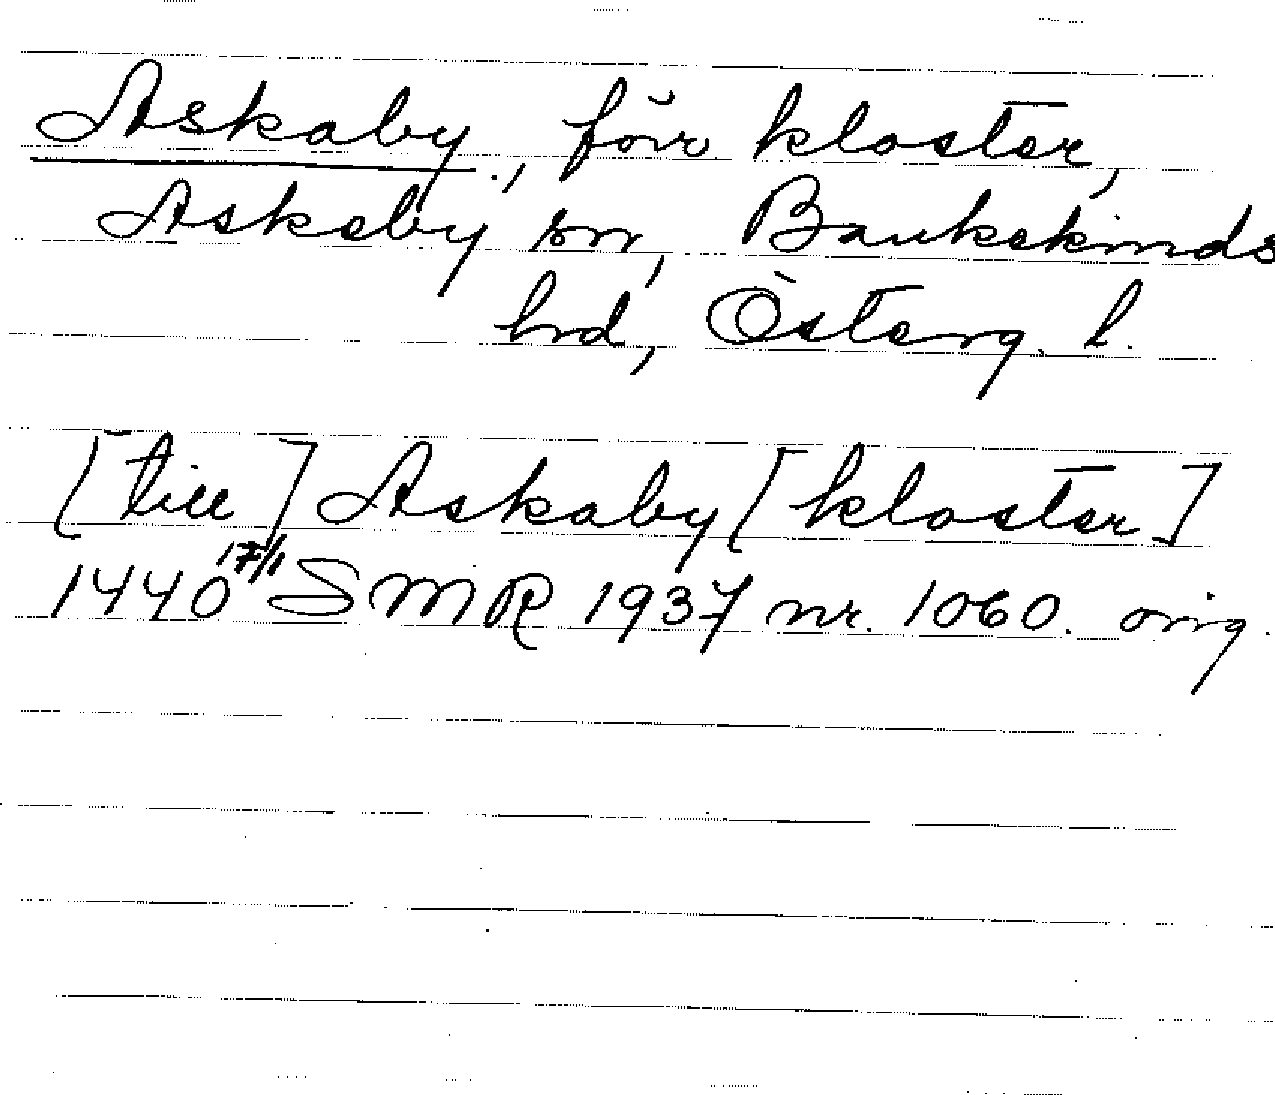 Askaby, förr kloster,
Askeby sn, Bankekinds
hrd, Österg. l.
[till] Askaby [kloster]
1440 17/1 SMR 1937 nr. 1060. orig.